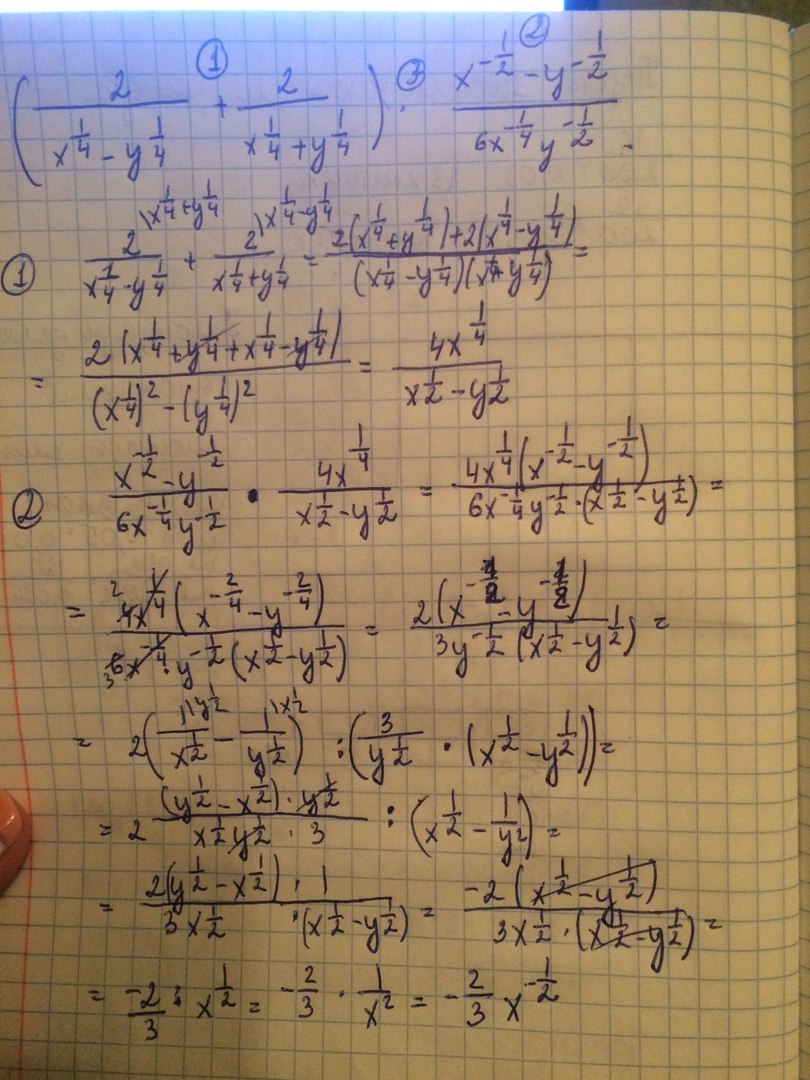 ① ② ③
( 2/(x^{1/4} - y^{1/4}) + 2/(x^{1/4} + y^{1/4}) ) · (x^{-1/2} - y^{-1/2})/(6x^{-1/4} y^{-1/2}) .
① 2/(x^{1/4} - y^{1/4}) \x^{1/4}+y^{1/4} + 2/(x^{1/4} + y^{1/4}) \x^{1/4}-y^{1/4} = (2(x^{1/4} + y^{1/4}) + 2(x^{1/4} - y^{1/4}))/((x^{1/4} - y^{1/4})(x^{1/4} + y^{1/4})) =
= 2(x^{1/4} + y^{1/4} + x^{1/4} - y^{1/4})/((x^{1/4})^2 - (y^{1/4})^2) = 4x^{1/4}/(x^{1/2} - y^{1/2})
② (x^{-1/2} - y^{-1/2})/(6x^{-1/4} y^{-1/2}) · 4x^{1/4}/(x^{1/2} - y^{1/2}) = 4x^{1/4}(x^{-1/2} - y^{-1/2})/(6x^{-1/4} y^{-1/2} · (x^{1/2} - y^{1/2})) =
= 2 4x^{1/4}(x^{-2/4} - y^{-2/4})/(3 6x^{-1/4} · y^{-1/2}(x^{1/2} - y^{1/2})) = 2(x^{-1/2} - y^{-1/2})/(3y^{-1/2}(x^{1/2} - y^{1/2})) =
= 2(1/x^{1/2} \y^{1/2} - 1/y^{1/2} \x^{1/2}) : (3/y^{1/2} · (x^{1/2} - y^{1/2})) =
= 2 (y^{1/2} - x^{1/2}) · y^{1/2}/(x^{1/2} y^{1/2} · 3) : (x^{1/2} - 1/y^2) =
= 2(y^{1/2} - x^{1/2}) · 1/(3x^{1/2} · (x^{1/2} - y^{1/2})) = -2(x^{1/2} - y^{1/2})/(3x^{1/2} · (x^{1/2} - y^{1/2})) =
= -2/3 : x^{1/2} = -2/3 · 1/x^2 = -2/3 x^{-1/2}